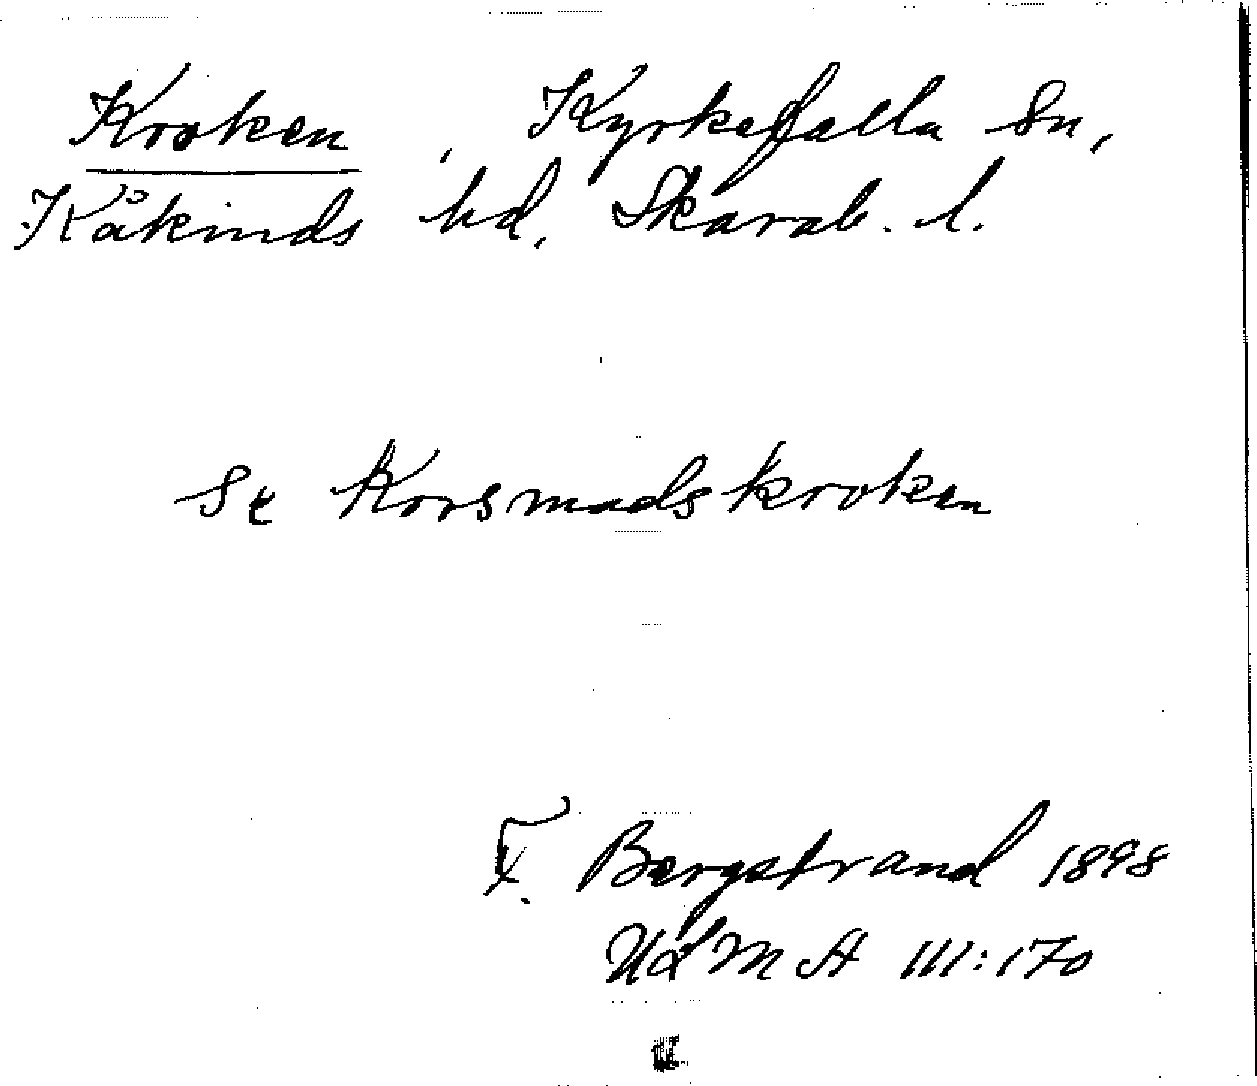 Kroken, Kyrkefalla sn,
Kåkinds hd, Skarab. l.
Se Korsmadskroken
F. Bergstrand 1898
ULMA 111:170